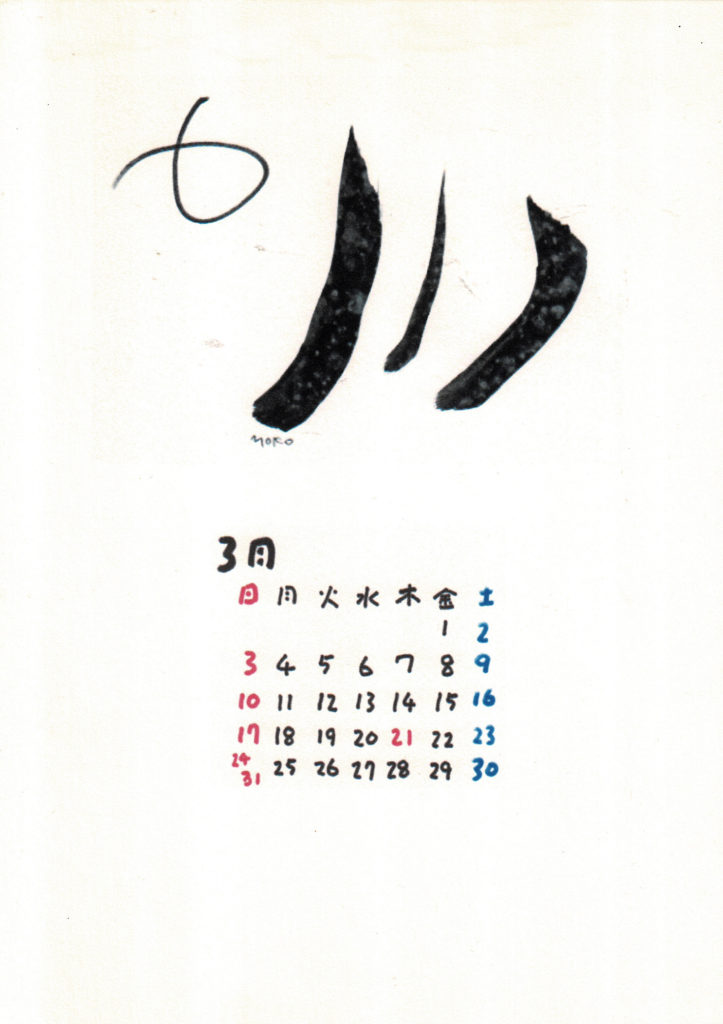 MOKO
3月
日 月 火 水 木 金 土
1 2
3 4 5 6 7 8 9
10 11 12 13 14 15 16
17 18 19 20 21 22 23
24 25 26 27 28 29 30
31